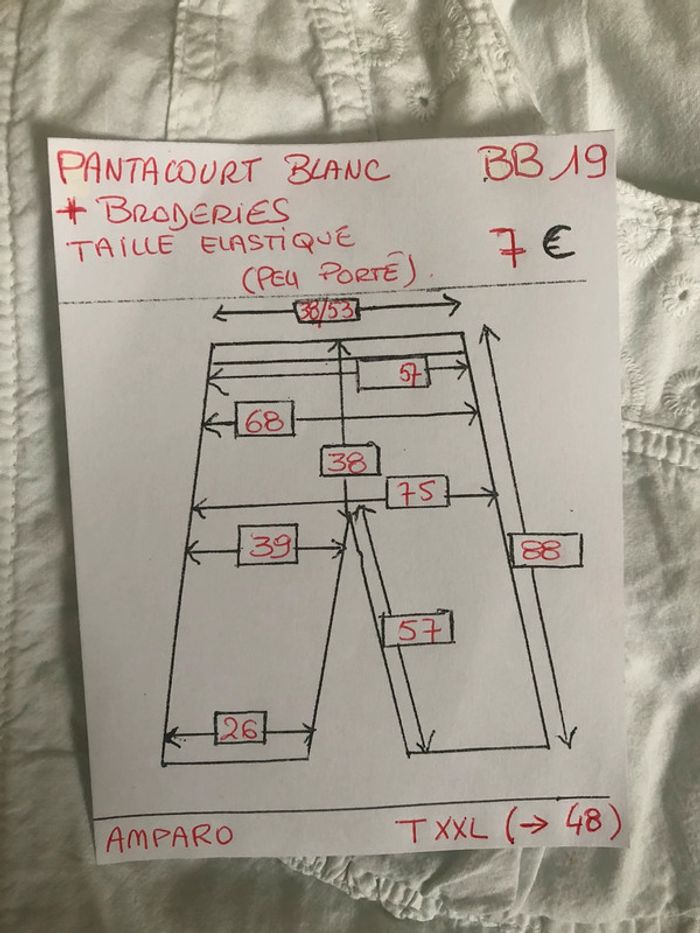 PANTACOURT BLANC BB 19
+ BRODERIES
TAILLE ELASTIQUE 7 €
(PEU PORTÉ).
38/53
57
68
38
75
39
88
57
26
AMPARO T XXL (→ 48)